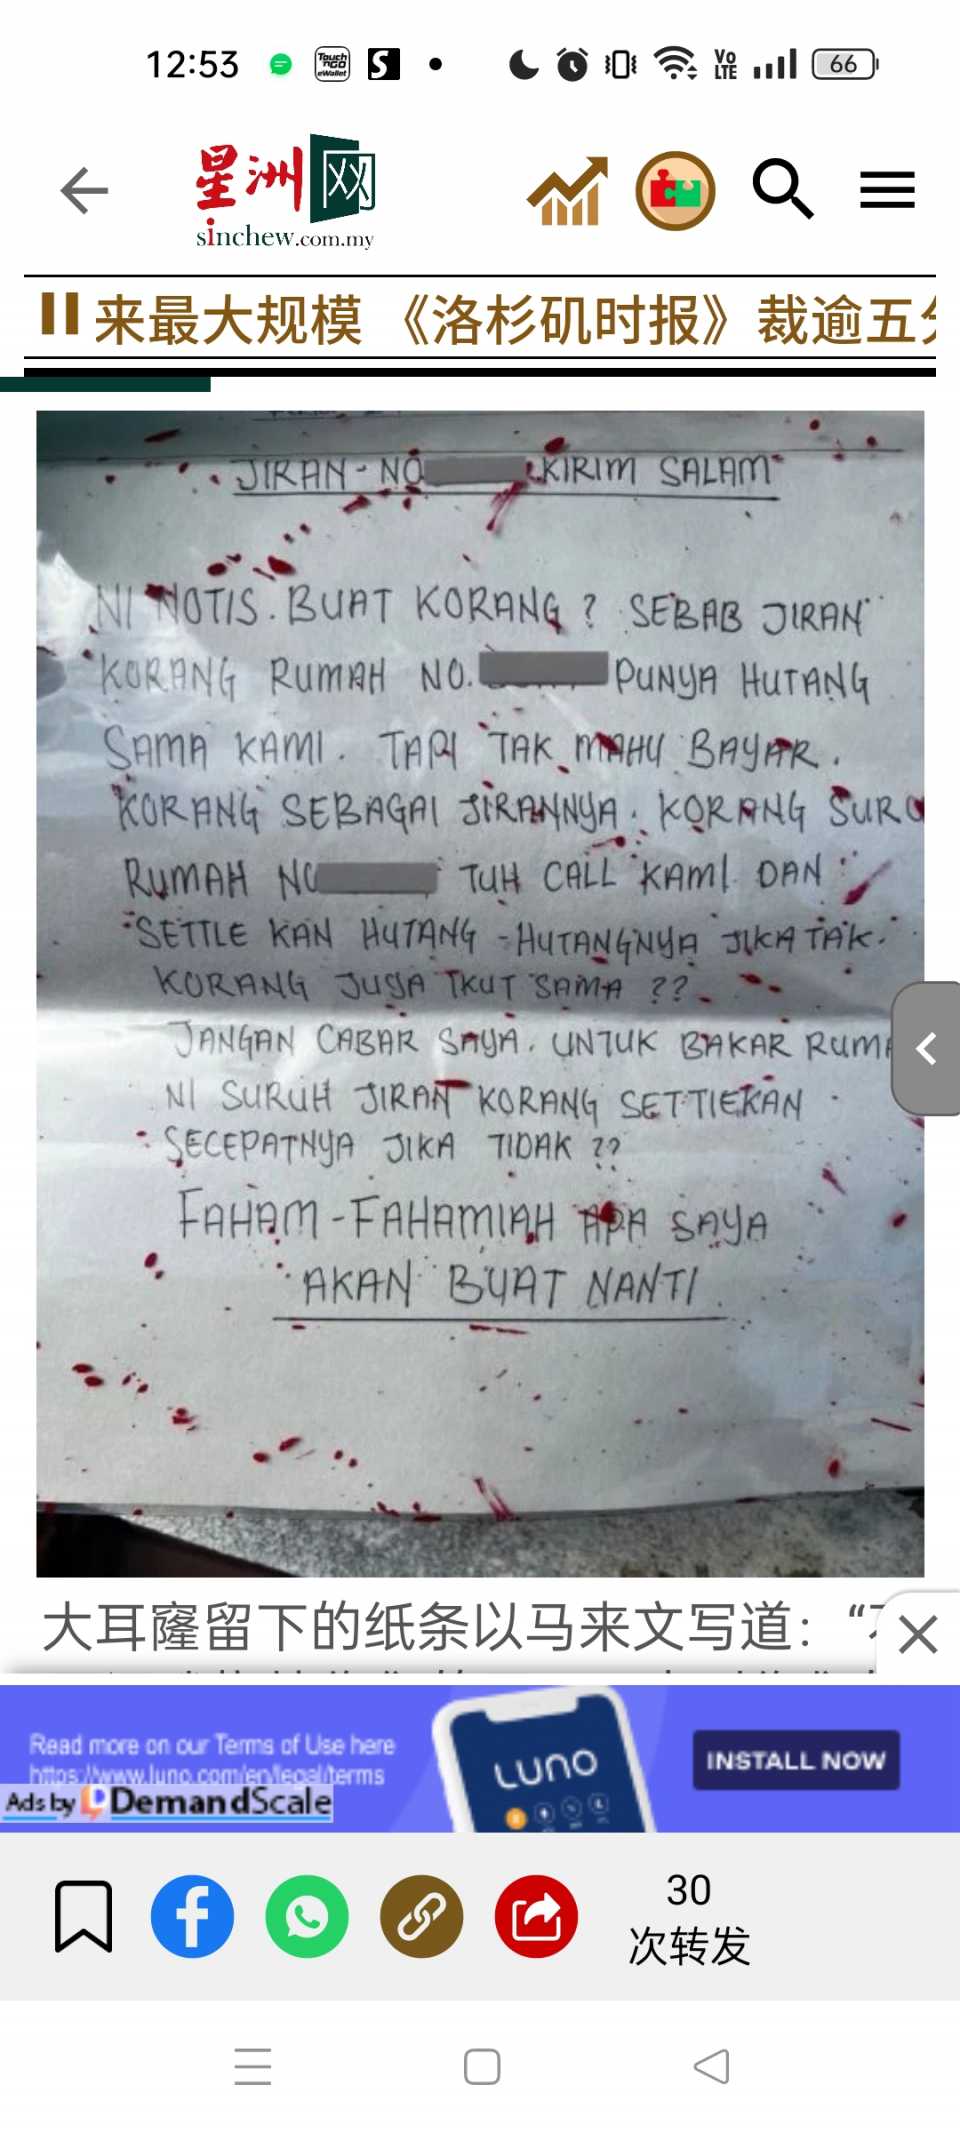 12:53
Touch 'nGO eWallet
S
Vo LTE
66
星洲网
sinchew.com.my
来最大规模 《洛杉矶时报》裁逾五
JIRAN - NO KIRIM SALAM
NI NOTIS. BUAT KORANG ? SEBAB JIRAN
KORANG RUMAH NO. PUNYA HUTANG
SAMA KAMI. TAPI TAK MAHU BAYAR.
KORANG SEBAGAI JIRANNYA. KORANG SURU
RUMAH NO TUH CALL KAMI. DAN
SETTLE KAN HUTANG - HUTANGNYA JIKA TAK.
KORANG JUGA IKUT SAMA ??
JANGAN CABAR SAYA. UNTUK BAKAR RUMA
NI SURUH JIRAN KORANG SETTIEKAN
SECEPATNYA JIKA TIDAK ??
FAHAM - FAHAMIAH APA SAYA
AKAN BUAT NANTI.
大耳窿留下的纸条以马来文写道：“
Read more on our Terms of Use here
https://www.luno.com/en/legal/terms
Ads by DemandScale
LUNO
INSTALL NOW
30
次转发